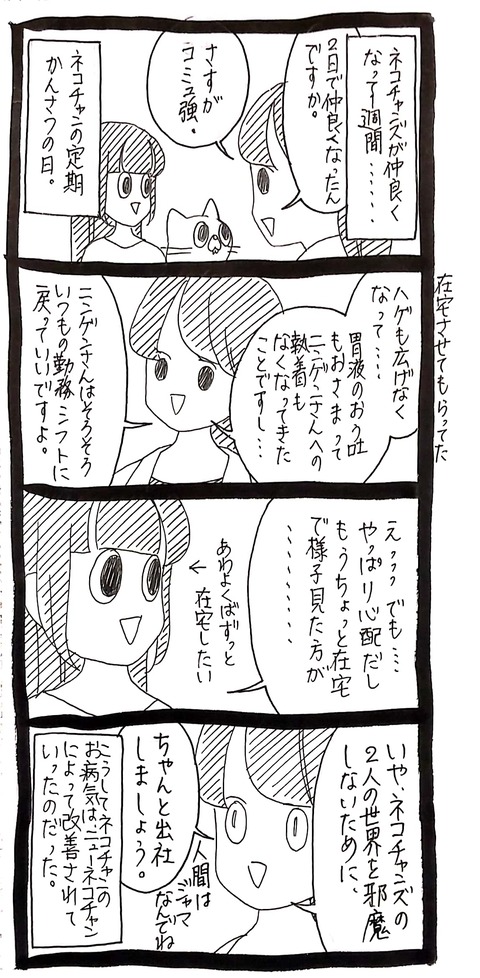 ネコチャンズが仲良く
なって1週間……
2日で仲良くなったん
ですか。
さすが
コミュ強。
ネコチャンの定期
かんさつの日。
在宅させてもらってた
ハゲも広げなく
なって……
胃液のおう吐
もおさまって
ニンゲンさんへの
執着も
なくなってきた
ことですし…
ニンゲンさんはそろそろ
いつもの勤務シフトに
戻っていいですよ。
えっっっでも…
やっぱり心配だし
もうちょっと在宅
で様子見た方が
……
あわよくばずっと
← 在宅したい
いや、ネコチャンズの
2人の世界を邪魔
しないために、
ちゃんと出社
しましょう。
人間は
ジャマ
なんでね
こうしてネコチャンの
お病気はニューネコチャン
によって改善されて
いったのだった。